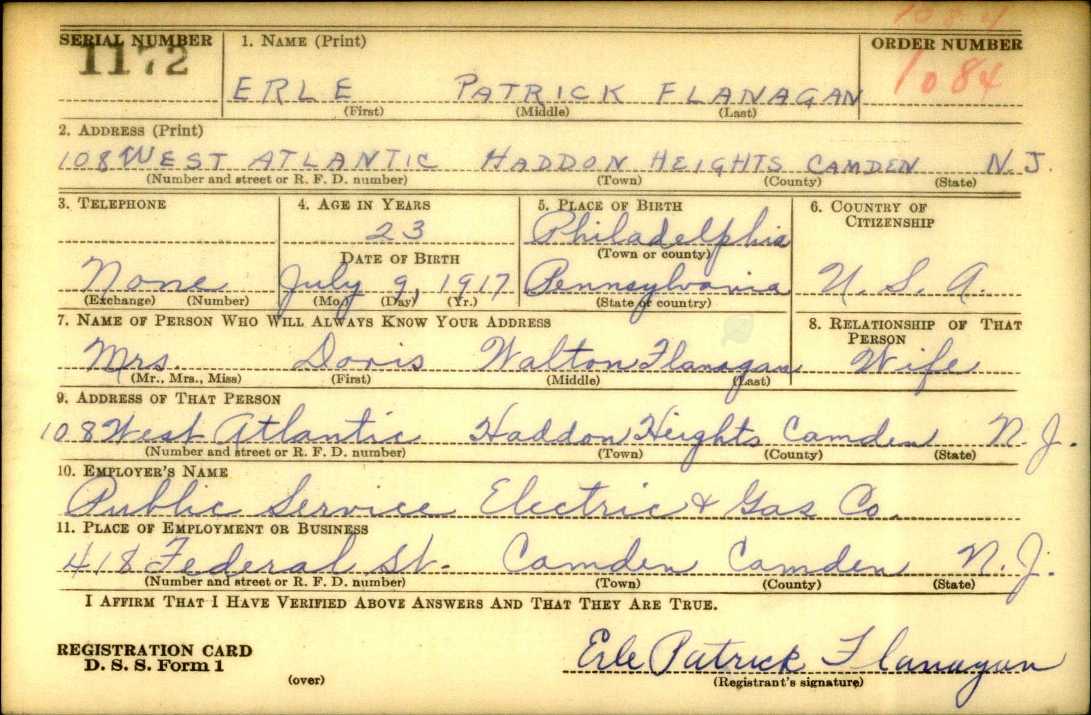 1084
SERIAL NUMBER 1. NAME (Print) ORDER NUMBER
1172 1084
ERLE PATRICK FLANAGAN
(First) (Middle) (Last)
2. ADDRESS (Print)
108 WEST ATLANTIC HADDON HEIGHTS CAMDEN N.J.
(Number and street or R. F. D. number) (Town) (County) (State)
3. TELEPHONE 4. AGE IN YEARS 5. PLACE OF BIRTH 6. COUNTRY OF CITIZENSHIP
23 Philadelphia
(Town or county)
DATE OF BIRTH
None July 9, 1917 Pennsylvania U. S. A.
(Exchange) (Number) (Mo.) (Day) (Yr.) (State or country)
7. NAME OF PERSON WHO WILL ALWAYS KNOW YOUR ADDRESS 8. RELATIONSHIP OF THAT PERSON
Mrs. Doris Walton Flanagan Wife
(Mr., Mrs., Miss) (First) (Middle) (Last)
9. ADDRESS OF THAT PERSON
108 West Atlantic Haddon Heights Camden N. J.
(Number and street or R. F. D. number) (Town) (County) (State)
10. EMPLOYER'S NAME
Public Service Electric & Gas Co.
11. PLACE OF EMPLOYMENT OR BUSINESS
418 Federal St. Camden Camden N. J.
(Number and street or R. F. D. number) (Town) (County) (State)
I AFFIRM THAT I HAVE VERIFIED ABOVE ANSWERS AND THAT THEY ARE TRUE.
REGISTRATION CARD
D. S. S. Form 1 Erle Patrick Flanagan
(over) (Registrant's signature)